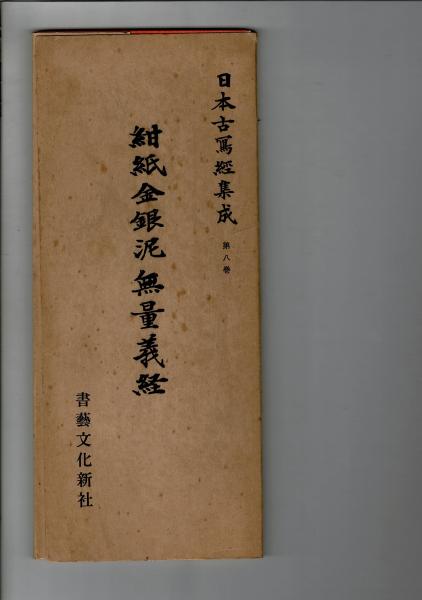 日本古寫經集成
第八巻
紺紙金銀泥無量義経
書藝文化新社